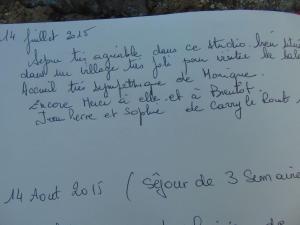 14 Juillet 2015
Séjour très agréable dans ce studio bien situé
dans un village très joli pour visiter la
Accueil très sympathique de Monique.
Encore Merci à elle et à Benoît.
Jean Pierre et Sophie de Carry le Rouet
14 Aout 2015 (Séjour de 3 Semaine
de